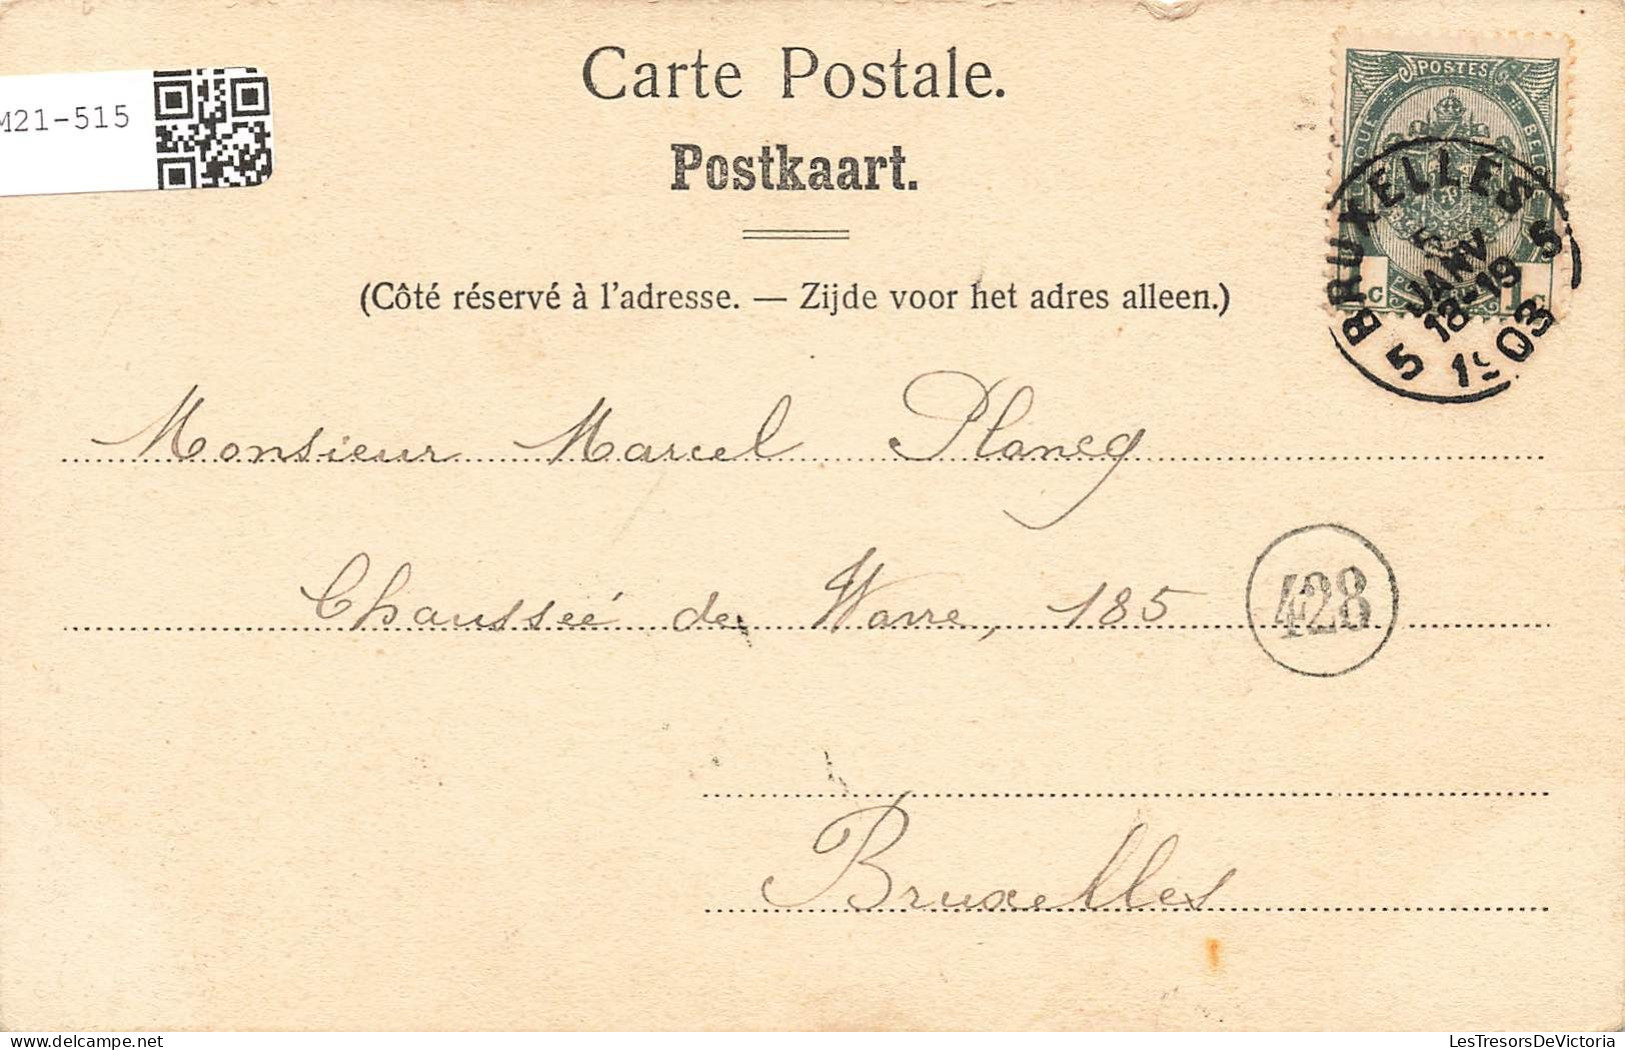 Carte Postale.
Postkaart.
M21-515
(Côté réservé à l'adresse. — Zijde voor het adres alleen.)
POSTES
BRUXELLES 5
5 JANV
18-19
1903
5
1 C
Monsieur Marcel Planeg
Chausseé de Wavre, 185
428
Bruxelles
LesTresorsDeVictoria